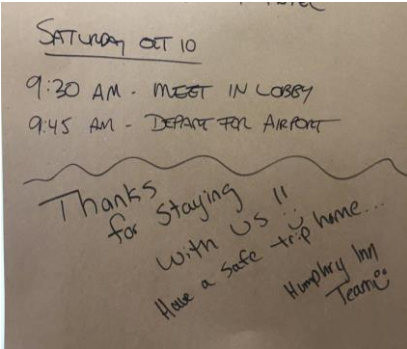 SATURDAY OCT 10
9:30 AM - MEET IN LOBBY
9:45 AM - DEPART FOR AIRPORT
Thanks
for staying
with us !!
Have a safe trip home...
Humphry Inn
Team